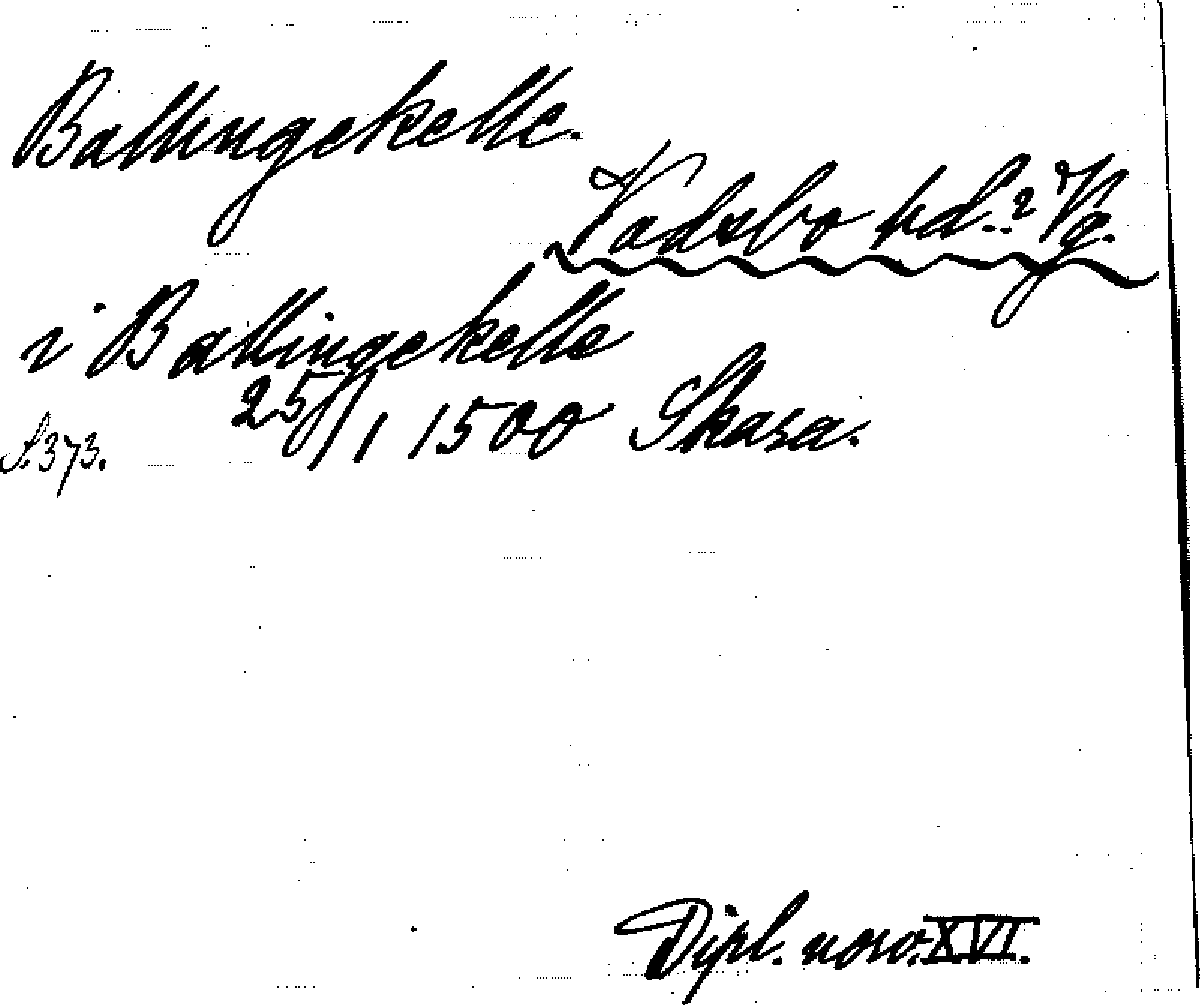 Ballingekelle.
Vadsbo hd.? Vg.
i Ballingekelle
25/1 1500 Skara.
S. 373.
Dipl. norv. XVI.